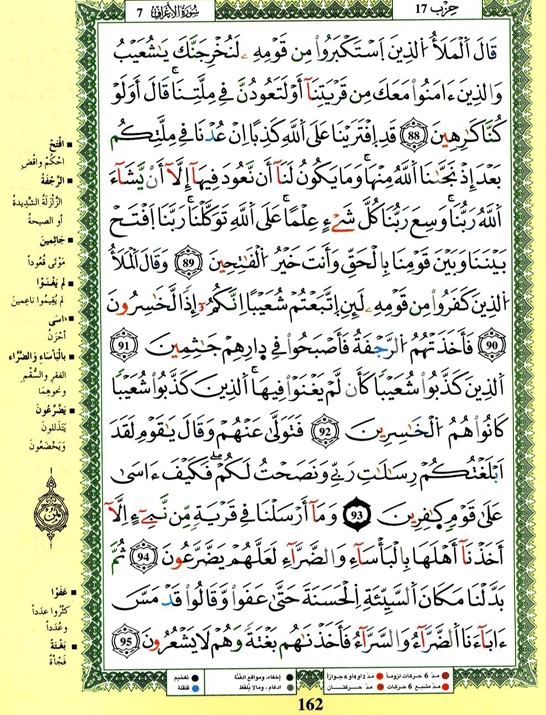 حِزْب 17
سُورَةُ الأَعْرَاف 7
قَالَ اَ۬لْمَلَأُ اُ۬لذِينَ اَ۪سْتَكْبَرُواْ مِن قَوْمِهِۦ لَنُخْرِجَنَّكَ يَٰشُعَيْبُ
وَالذِينَ ءَامَنُواْ مَعَكَ مِن قَرْيَتِنَآ أَوْ لَتَعُودُنَّ فِے مِلَّتِنَاۖ قَالَ أَوَلَوْ
كُنَّا كَٰرِهِينَ 88 قَدِ اِ۪فْتَرَيْنَا عَلَى اَ۬للَّهِ كَذِباً اِنْ عُدْنَا فِے مِلَّتِكُم
بَعْدَ إِذْ نَجَّىٰنَا اَ۬للَّهُ مِنْهَاۖ وَمَا يَكُونُ لَنَآ أَن نَّعُودَ فِيهَآ إِلَّآ أَنْ يَّشَآءَ
اَ۬للَّهُ رَبُّنَاۖ وَسِعَ رَبُّنَا كُلَّ شَےْءٍ عِلْماًۖ عَلَى اَ۬للَّهِ تَوَكَّلْنَاۖ رَبَّنَا اَ۪فْتَحْ
بَيْنَنَا وَبَيْنَ قَوْمِنَا بِالْحَقِّ وَأَنتَ خَيْرُ اُ۬لْفَٰتِحِينَ 89 وَقَالَ اَ۬لْمَلَأُ
اُ۬لذِينَ كَفَرُواْ مِن قَوْمِهِۦ لَئِنِ اِ۪تَّبَعْتُمْ شُعَيْباً اِنَّكُمُۥٓ إِذاً لَّخَٰسِرُونَ
90 فَأَخَذَتْهُمُ اُ۬لرَّجْفَةُ فَأَصْبَحُواْ فِے دِارِهِمْ جَٰثِمِينَ 91
اَ۬لذِينَ كَذَّبُواْ شُعَيْباً كَأَن لَّمْ يَغْنَوْاْ فِيهَاۖ اَ۬لذِينَ كَذَّبُواْ شُعَيْباً
كَانُواْ هُمُ اُ۬لْخَٰسِرِينَ 92 فَتَوَلَّىٰ عَنْهُمْ وَقَالَ يَٰقَوْمِ لَقَدَ
اَبْلَغْتُكُمْ رِسَٰلَٰتِ رَبِّے وَنَصَحْتُ لَكُمْۖ فَكَيْفَ ءَاسَىٰ
عَلَىٰ قَوْمٍ كٰ۪فِرِينَ 93 وَمَآ أَرْسَلْنَا فِے قَرْيَةٍ مِّن نَّبِےٓءٍ اِلَّآ
أَخَذْنَآ أَهْلَهَا بِالْبَأْسَآءِ وَالضَّرَّآءِ لَعَلَّهُمْ يَضَّرَّعُونَ 94 ثُمَّ
بَدَّلْنَا مَكَانَ اَ۬لسَّيِّئَةِ اِ۬لْحَسَنَةَ حَتَّىٰ عَفَواْ وَّقَالُواْ قَدْ مَسَّ
ءَابَآءَنَا اَ۬لضَّرَّآءُ وَالسَّرَّآءُ فَأَخَذْنَٰهُم بَغْتَةً وَهُمْ لَا يَشْعُرُونَ 95
افْتَحْ
احْكُمْ واقْضِ
الرَّجْفَةُ
الزَّلْزَلَةُ الشَّدِيدَةُ
أو الصيحةُ
جَاثِمِينَ
مَوْتَى قُعُوداً
لَمْ يَغْنَوْا
لم يُقِيمُوا ناعِمينَ
ءَاسَى
أَحْزَن
بِالْبَأْسَاءِ وَالضَّرَّاء
الفقرِ والسُّقْمِ
ونحوهِما
يَضَّرَّعُونَ
يَتَذَلَّلونَ
وَيَخْضَعُونَ
ثمن
عَفَوْا
كَثُرُوا عدداً
وعُدَداً
بَغْتَةً
فَجْأَةً
مدّ 6 حركات لزوماً
مدّ 2 أو 4 أو 6 جوازاً
إخفاء، ومواقع الغُنَّة
تفخيم
مدّ مشبع 6 حركات
مدّ حركتان
إدغام، وما لا يُلفظ
قلقلة
162